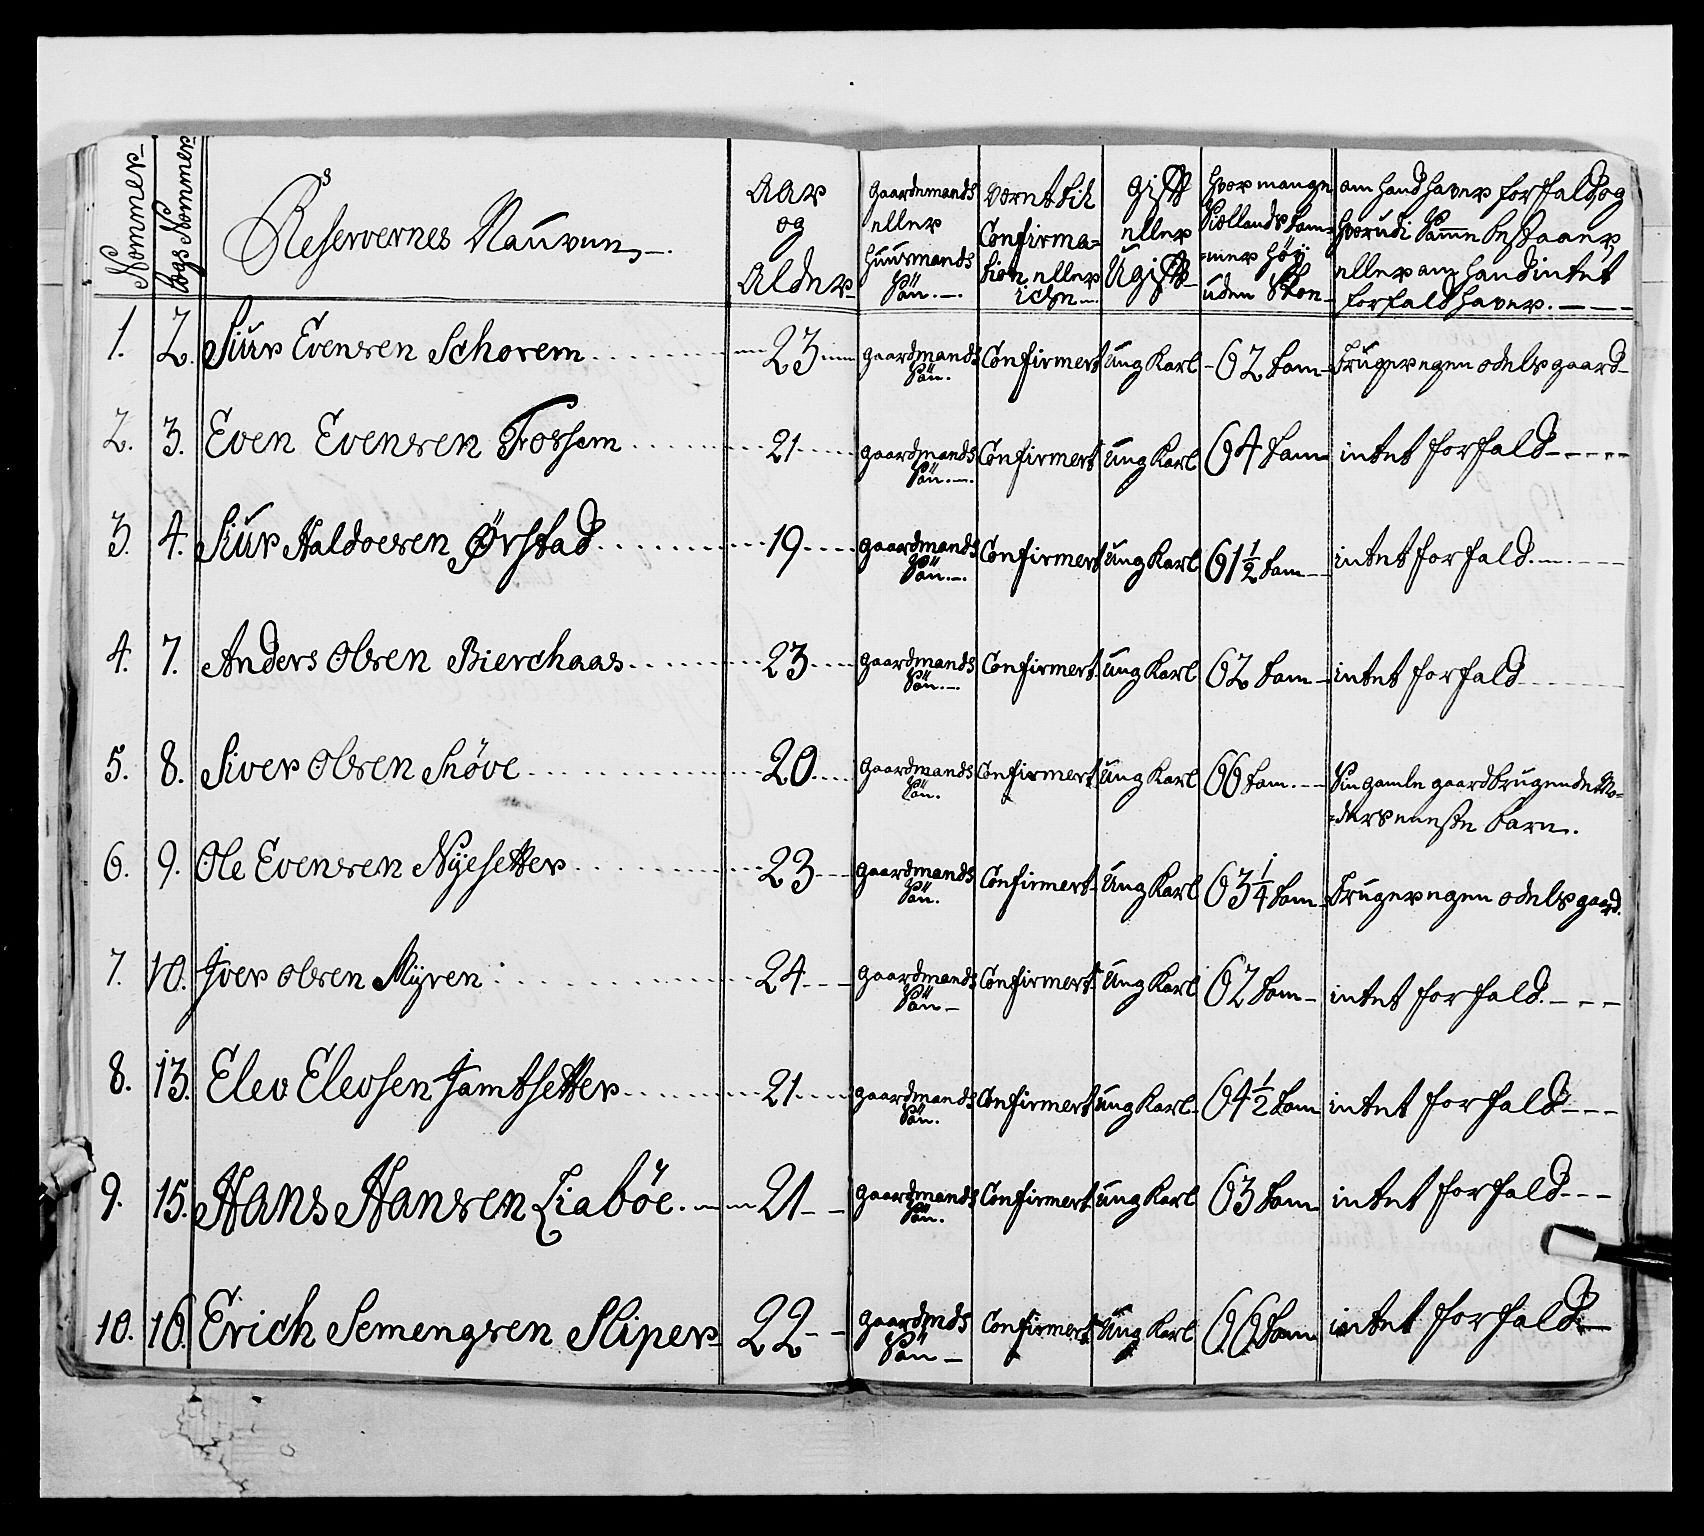 Nommer
Lægs Nommer
Reservernes Naufune
Aar og Alder
gaardemands eller huusmands Sön.
Været til Confirmation eller icke
gift eller Ugift
hvor mange Siællands Tommer höy uden Skoe
om hand haver forfald og hvorudi Samme bestaaer, eller om hand intet forfald haver.
1. 2. Siur Evensen Schorem 23 gaardmands Sön. Confirmert Ung Karl 62 tom brüger egen odels gaard
2. 3. Even Evensen Fossem 21 gaardmands Sön. Confirmert Ung Karl 64 tom intet forfald
3. 4. Siur Haldoersen Ørstad 19 gaardmands Sön. Confirmert Ung Karl 61 1/2 tom intet forfald
4. 7. Anders Olsen Bierchaas 23 gaardmands Sön. Confirmert Ung Karl 62 tom intet forfald
5. 8. Siver Olsen Snöve 20 gaardmands Sön. Confirmert Ung Karl 66 tom. Sin gamle gaardbrugende Mo=
=ders eneste barn.
6. 9. Ole Evensen Nyesetter 23 gaardmands Sön. Confirmert Ung Karl 63 1/4 tom brüger egen odels gaard.
7. 10. Iver Olsen Myren 24 gaardmands Sön Confirmert Ung Karl 62 tom intet forfald
8. 13. Elev Elevsen Jamtsetter 21 gaardmands Sön. Confirmert Ung Karl 64 1/2 tom intet forfald
9. 15. Hans Hansen Liaböe 21 gaardmands Sön. Confirmert Ung Karl 63 tom intet forfald
10. 16. Erich Semengsen Sliper 22 gaardmds Sön Confirmert Ung Karl 66 tom intet forfald